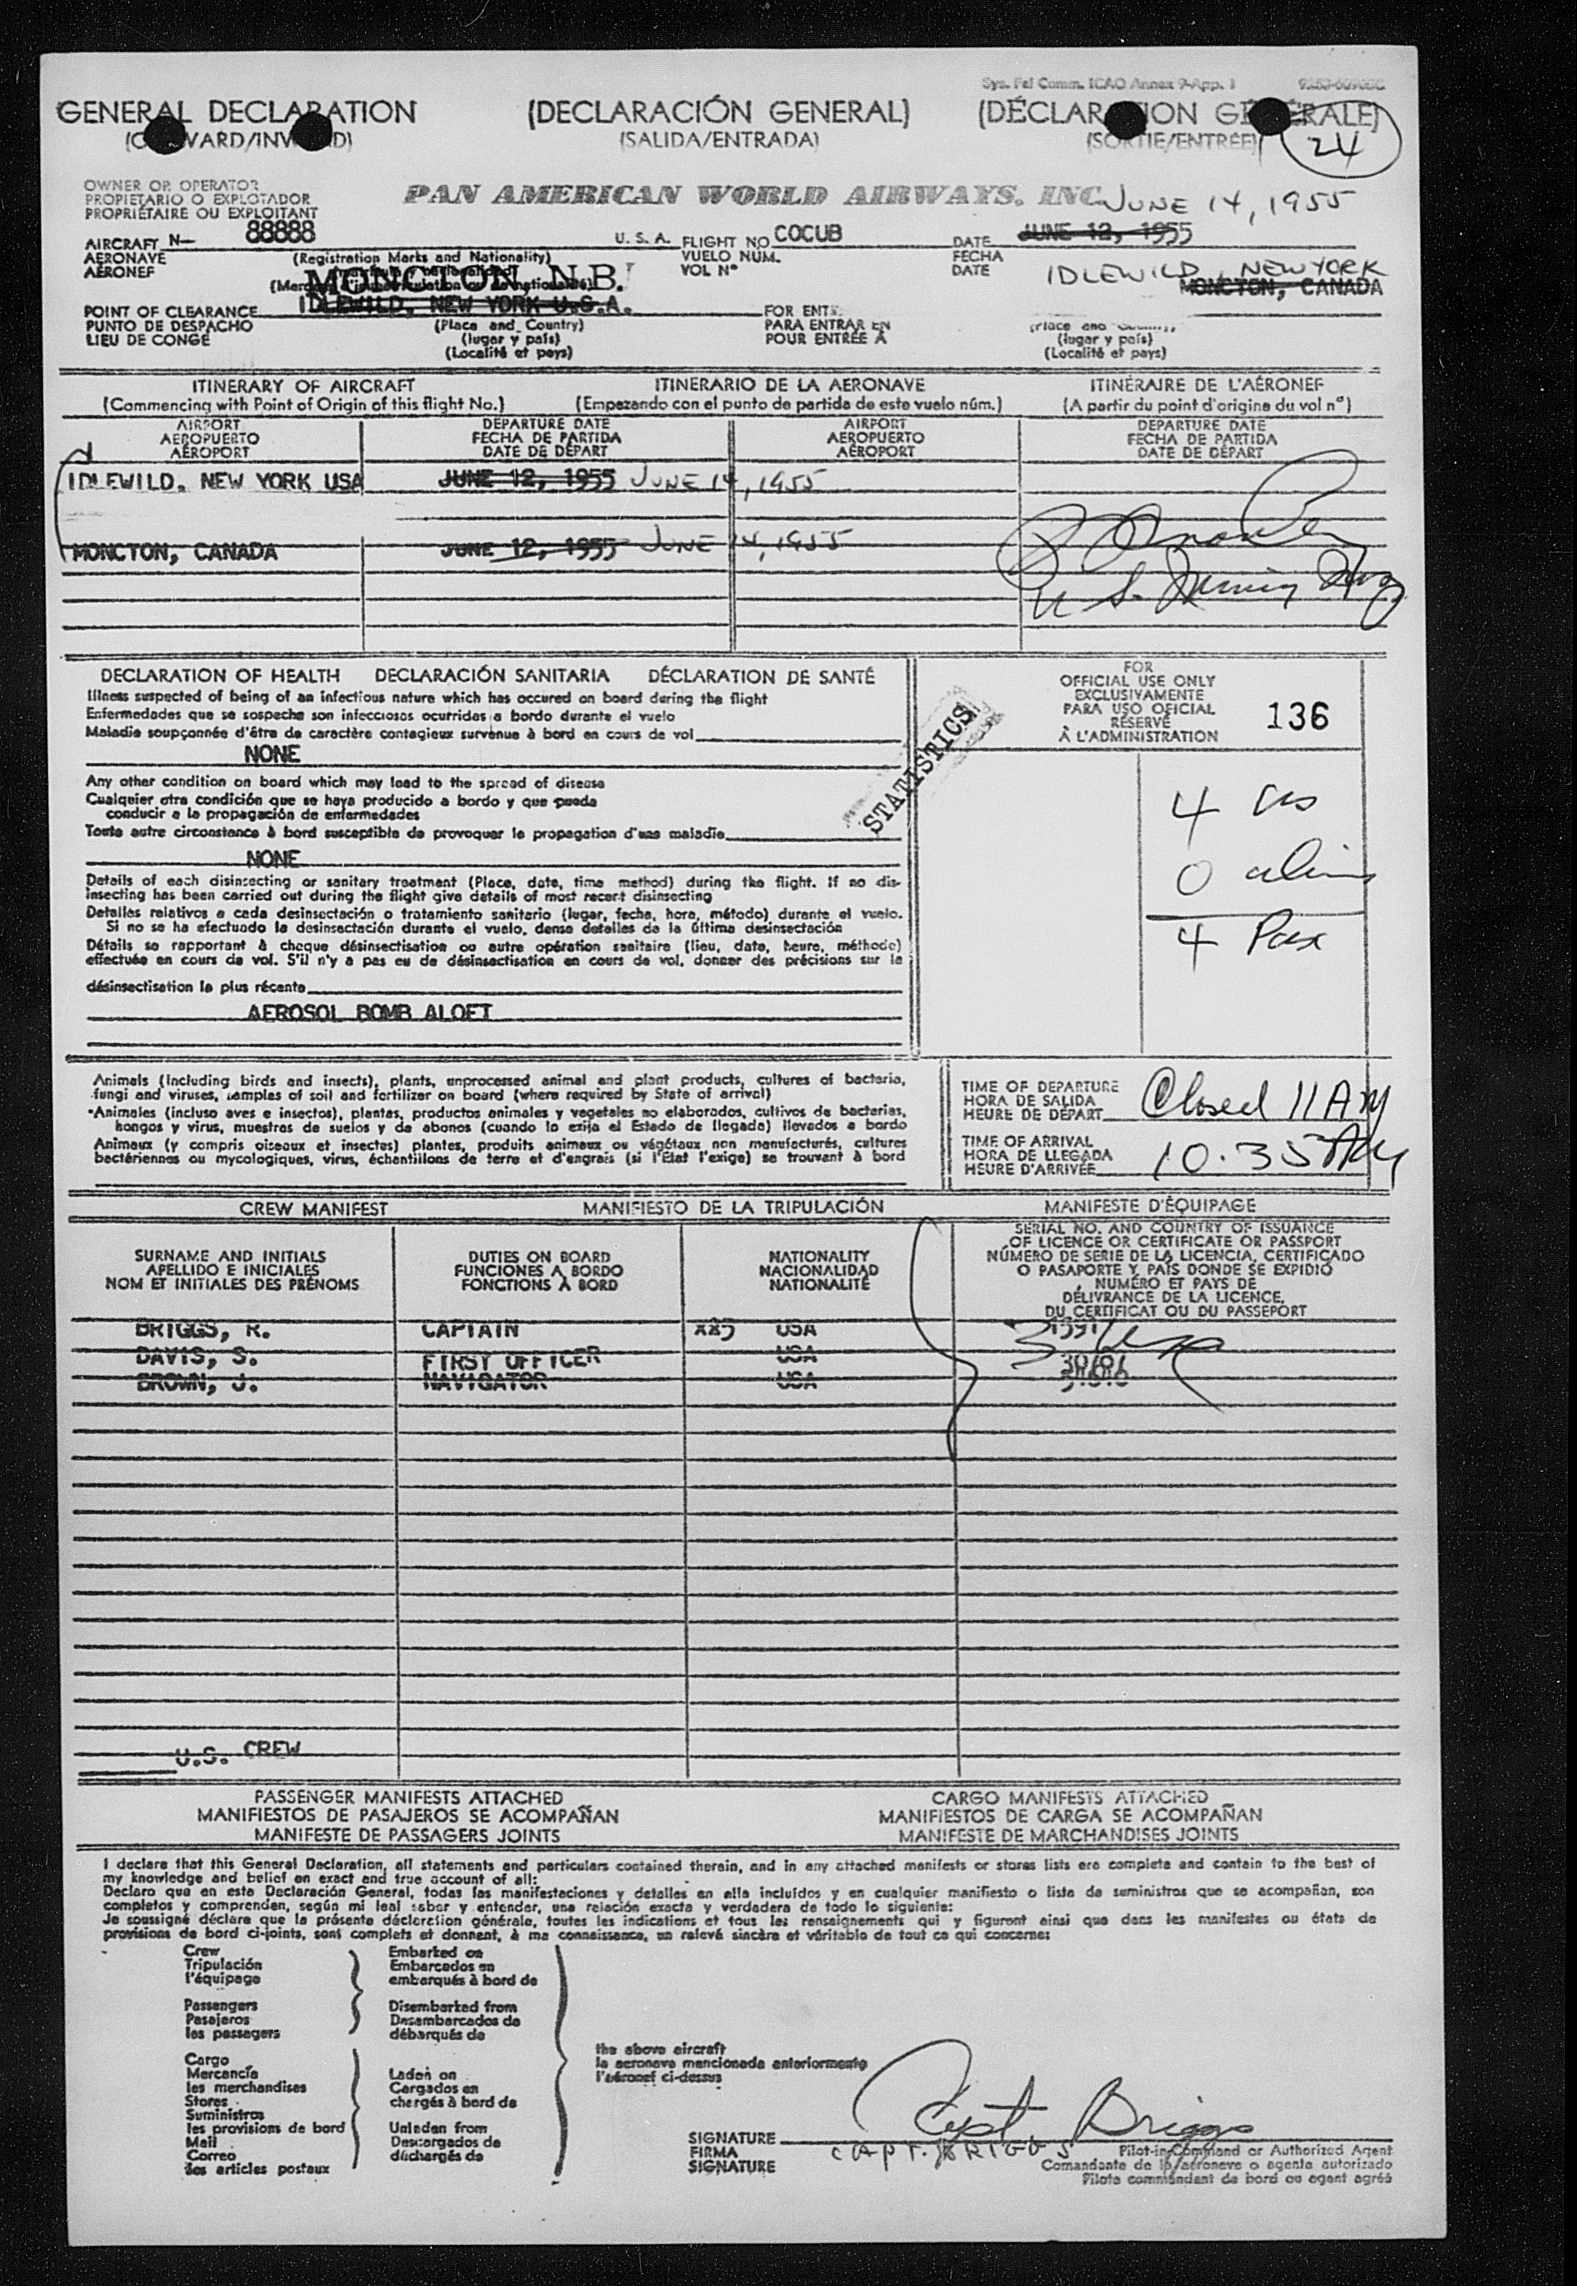 Sys. Fel Comm. ICAO Annex 9-App. 1
GENERAL DECLARATION (DECLARACIÓN GENERAL) (DÉCLARATION GÉNÉRALE)
(OUTWARD/INWARD) (SALIDA/ENTRADA) (SORTIE/ENTRÉE)
24
OWNER OR OPERATOR
PROPIETARIO O EXPLOTADOR
PROPRIÉTAIRE OU EXPLOITANT
PAN AMERICAN WORLD AIRWAYS, INC.
JUNE 14, 1955
AIRCRAFT N- 88888 U. S. A. FLIGHT NO COCUB DATE JUNE 12, 1955
AERONAVE (Registration Marks and Nationality) VUELO NÚM. FECHA
AÉRONEF VOL Nº DATE
MONCTON, N.B.
IDLEWILD, NEW YORK
MONCTON, CANADA
POINT OF CLEARANCE IDLEWILD, NEW YORK U.S.A. FOR ENT
PUNTO DE DESPACHO (Place and Country) PARA ENTRAR EN (Place and Country)
LIEU DE CONGÉ (lugar y país) POUR ENTRÉE À (lugar y país)
(Localité et pays) (Localité et pays)
ITINERARY OF AIRCRAFT ITINERARIO DE LA AERONAVE ITINÉRAIRE DE L'AÉRONEF
(Commencing with Point of Origin of this flight No.) (Empezando con el punto de partida de este vuelo núm.) (A partir du point d'origine du vol nº)
AIRPORT DEPARTURE DATE AIRPORT DEPARTURE DATE
AEROPUERTO FECHA DE PARTIDA AEROPUERTO FECHA DE PARTIDA
AÉROPORT DATE DE DÉPART AÉROPORT DATE DE DÉPART
IDLEWILD, NEW YORK USA JUNE 12, 1955 JUNE 14, 1955
MONCTON, CANADA JUNE 12, 1955 JUNE 14, 1955
DECLARATION OF HEALTH DECLARACIÓN SANITARIA DÉCLARATION DE SANTÉ
Illness suspected of being of an infectious nature which has occured on board during the flight
Enfermedades que se sospeche son infecciosas ocurridas a bordo durante el vuelo
Maladie soupçonnée d'être de caractère contagieux survenue à bord en cours de vol
NONE
Any other condition on board which may lead to the spread of disease
Cualquier otra condición que se haya producido a bordo y que pueda
conducir a la propagación de enfermedades
Toute autre circonstance à bord susceptible de provoquer la propagation d'une maladie
NONE
Details of each disinsecting or sanitary treatment (Place, date, time method) during the flight. If no dis-
insecting has been carried out during the flight give details of most recent disinsecting
Detalles relativos a cada desinsectación o tratamiento sanitario (lugar, fecha, hora, método) durante el vuelo.
Si no se ha efectuado la desinsactación durante el vuelo, dense detalles de la última desinsectación
Détails se rapportant à chaque désinsectisation ou autre opération sanitaire (lieu, date, heure, méthode)
effectuée en cours de vol. S'il n'y a pas eu de désinsectisation en cours de vol, donner des précisions sur la
désinsectisation la plus récente
AEROSOL BOMB ALOFT
STATISTICS
FOR
OFFICIAL USE ONLY
EXCLUSIVAMENTE
PARA USO OFICIAL
RÉSERVÉ
À L'ADMINISTRATION
136
4
0
4 Pax
Animals (Including birds and insects), plants, unprocessed animal and plant products, cultures of bacteria,
fungi and viruses, samples of soil and fertilizer on board (where required by State of arrival)
Animales (incluso aves e insectos), plantas, productos animales y vegetales no elaborados, cultivos de bacterias,
hongos y virus, muestras de suelos y de abonos (cuando lo exija el Estado de llegada) llevados a bordo
Animaux (y compris oiseaux et insectes) plantes, produits animaux ou végétaux non manufacturés, cultures
bactériennes ou mycologiques, virus, échantillons de terre et d'engrais (si l'Etat l'exige) se trouvant à bord
TIME OF DEPARTURE
HORA DE SALIDA
HEURE DE DÉPART Closed 11 AM
TIME OF ARRIVAL
HORA DE LLEGADA
HEURE D'ARRIVÉE 10.35 AM
CREW MANIFEST MANIFIESTO DE LA TRIPULACIÓN MANIFESTE D'ÉQUIPAGE
SURNAME AND INITIALS
APELLIDO E INICIALES
NOM ET INITIALES DES PRÉNOMS
DUTIES ON BOARD
FUNCIONES A BORDO
FONCTIONS À BORD
NATIONALITY
NACIONALIDAD
NATIONALITÉ
SERIAL NO. AND COUNTRY OF ISSUANCE
OF LICENCE OR CERTIFICATE OR PASSPORT
NÚMERO DE SERIE DE LA LICENCIA, CERTIFICADO
O PASAPORTE Y PAÍS DONDE SE EXPIDIÓ
NUMÉRO ET PAYS DE
DÉLIVRANCE DE LA LICENCE,
DU CERTIFICAT OU DU PASSEPORT
BRIGGS, R. CAPTAIN USA
DAVIS, S. FIRST OFFICER USA
BROWN, J. NAVIGATOR USA
U.S. CREW
PASSENGER MANIFESTS ATTACHED CARGO MANIFESTS ATTACHED
MANIFIESTOS DE PASAJEROS SE ACOMPAÑAN MANIFIESTOS DE CARGA SE ACOMPAÑAN
MANIFESTE DE PASSAGERS JOINTS MANIFESTE DE MARCHANDISES JOINTS
I declare that this General Declaration, all statements and particulars contained therein, and in any attached manifests or stores lists are complete and contain to the best of
my knowledge and belief an exact and true account of all:
Declaro que en esta Declaración General, todas las manifestaciones y detalles en ella incluídos y en cualquier manifiesto o lista de suministros que se acompañan, son
completos y comprenden, según mi leal saber y entender, una relación exacta y verdadera de todo lo siguiente:
Je soussigné déclare que la présente déclaration générale, toutes les indications et tous les renseignements qui y figurent ainsi que dans les manifestes ou états de
provisions de bord ci-joints, sont complets et donnent, à ma connaissance, un relevé sincère et véritable de tout ce qui concerne:
Crew Embarked on
Tripulación Embarcados en
l'équipage embarqués à bord de
Passengers Disembarked from
Pasajeros Desembarcados de
les passagers débarqués de
the above aircraft
la aeronave mencionada anteriormente
l'aéronef ci-dessus
Cargo
Mercancía Laden on
les merchandises Cargados en
Stores chargés à bord de
Suministros
les provisions de bord Unladen from
Mail Descargados de
Correo déchargés de
des articles postaux
SIGNATURE Capt Briggs
FIRMA CAPT. BRIGGS Pilot-in-Command or Authorized Agent
SIGNATURE Comandante de la aeronave o agente autorizado
Pilote commandant de bord ou agent agréé